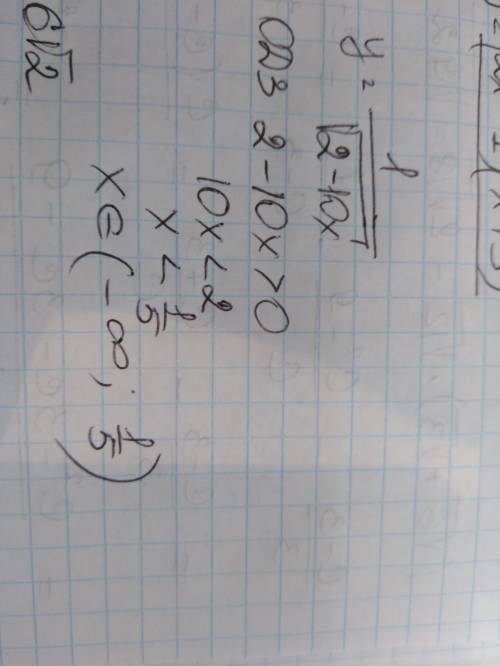 y = 1/√(2-10x)
ОДЗ 2-10x>0
10x<2
x < 1/5
x ∈ (-∞; 1/5)
6√2